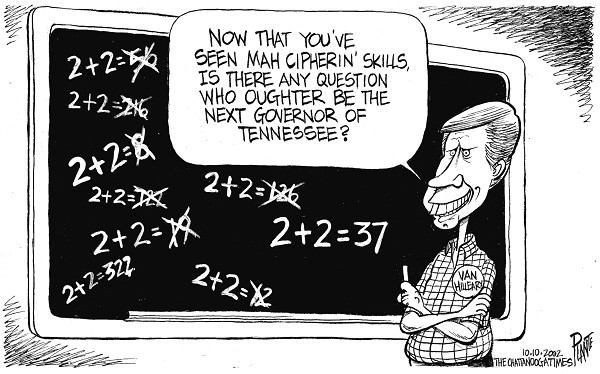 NOW THAT YOU'VE
SEEN MAH CIPHERIN' SKILLS,
IS THERE ANY QUESTION
WHO OUGHTER BE THE
NEXT GOVERNOR OF
TENNESSEE?
2+2=
2+2=216
2+2=8
2+2=
2+2=19
2+2=322
2+2=126
2+2=37
2+2=12
VAN
HILLEARY
10.10.2002
PLANTE
THE CHATTANOOGA TIMES